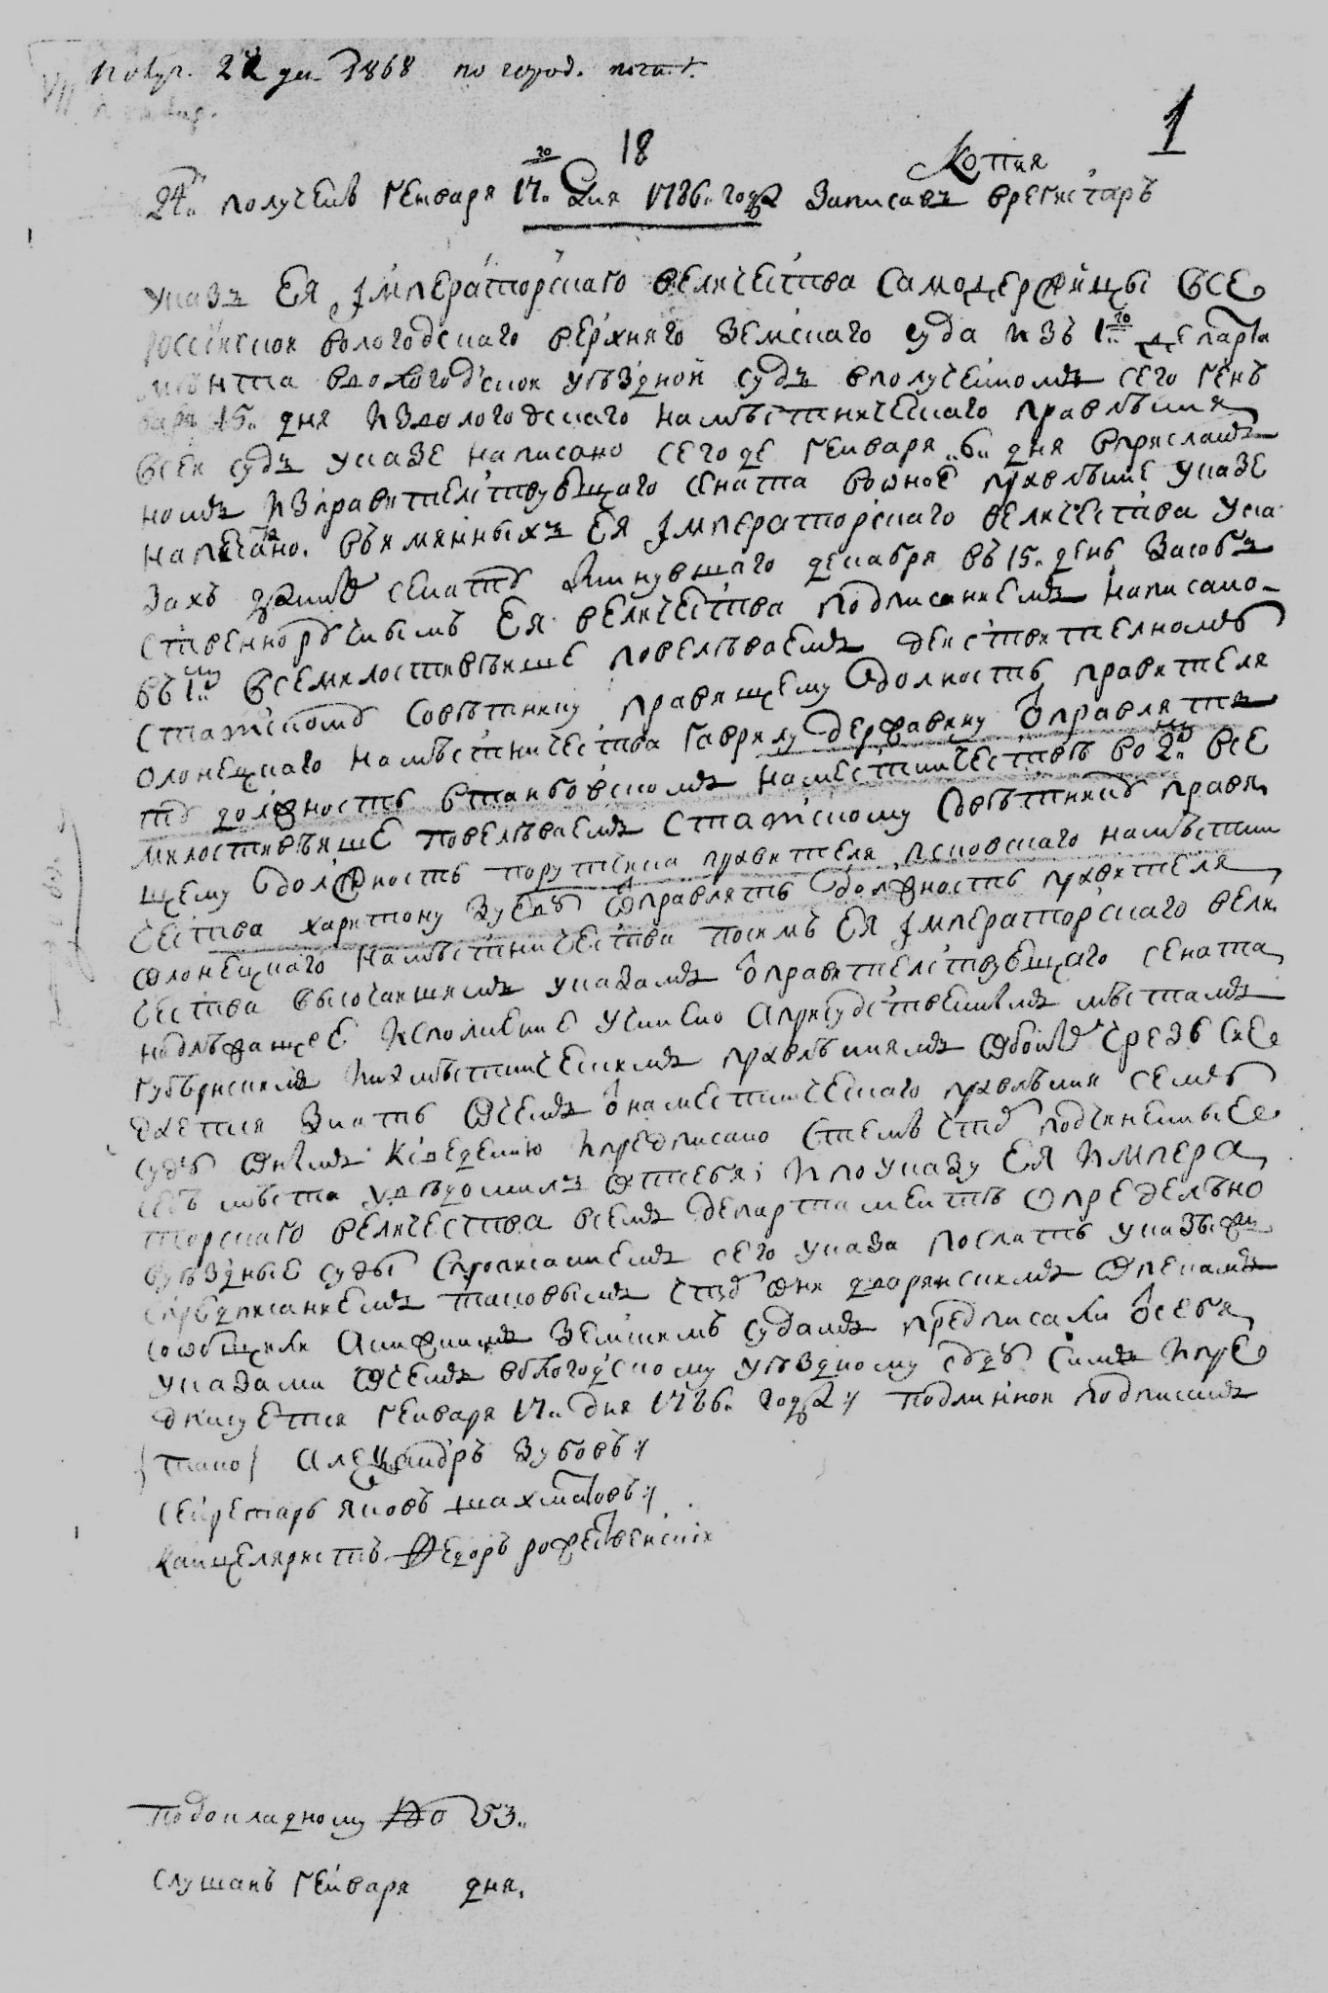 22 дек 1868 по город. почт.
1
18
Копия
24. получен Генваря 17.го дня 1786. года Записав врегистръ
указъ Ея Імператорскаго величества самодержицы все
российской вологодскаго верхняго земскаго суда изъ 1.го департа
мента вдологодской уѣздной судъ вполученномъ сего генъ
варя 15. дня Извологодскаго намѣстническаго правлѣния
всей судъ указе написано сегоде генваря 6. дня вприслан
номъ Изправителствующаго сената воѡное правлѣние указе
напечатано. въимянныхъ Ея Імператорскаго величества ука
захъ данныхъ сенату минувшаго декабря въ 15. день Засоб
ственноручнымъ Ея величества подписаниемъ написано
въ 1.мъ всемилостивѣише повелѣваемъ действителному
статскому совѣтнику правящему должность правителя
олонецкаго намѣстничества гаврилу державину ѡправлять
ту должность втанбовскомъ наместничествѣ во 2.мъ все
милостивѣише повелѣваемъ статскому совѣтнику правя
щему должность порутчика правителя псковскаго намѣстни
чества харитону Зуеву ѡправлять должность правителя
ѡлонецкаго намѣстничества посимъ Ея Імператорскаго вели
чества высочаишимъ указамъ ѡправителствующаго сената
надлежащее исполнение учинено априсудственнымъ мѣстамъ
губернскимъ Инамѣстническимъ правлѣниямъ ѡбоиз чрезъ сие
дается знать ѡчемъ ѡнаместническаго правлѣния сему
суду ѡнымъ квѣдению Ипредписано стемъ чтоб подчиненные
себѣ мѣста увѣдомилъ ѡтсебя; Ипоуказу Ея Импера
торскаго величества всемъ департаментѣ ѡпределѣно
вуѣздные суды спрописаниемъ сего указа послать указы
спредписаниемъ таковымъ чтоб ѡни дворянскимъ ѡпекамъ
сообщили Анижнимъ Земскимъ судамъ предписали ѡсебя
указами ѡчемъ вологодскому уѣздному суду симъ Ипре
дписуется генваря 17. дня 1786. года ·// подлинной подписалъ
{тако} александръ Зубовъ ·//
секретарь яковъ шахматовъ ·//
канцеляристъ Федоръ рожественский
Подокладному № 253.
Слушанъ Генваря дня.